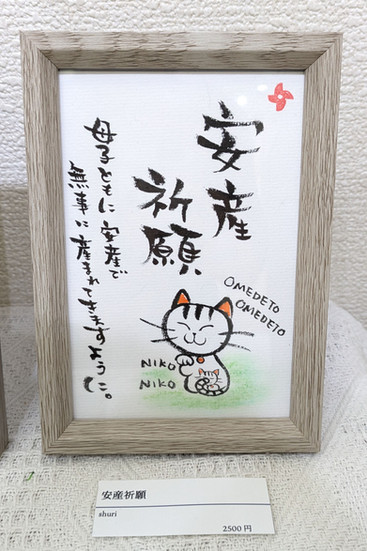 安産
祈願
母子ともに安産で
無事に産まれてきますように。
OMEDETO
OMEDETO
NIKO
NIKO
安産祈願
shuri
2500円